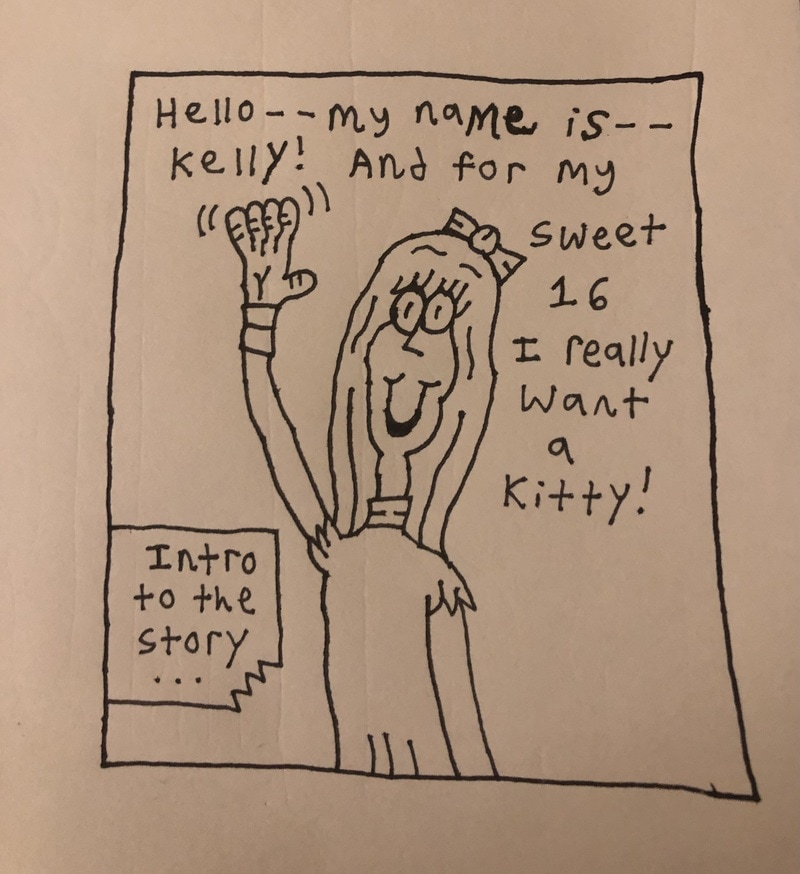 Hello--my name is--
Kelly! And for my
sweet
16
I really
want
a
Kitty!
Intro
to the
story
...